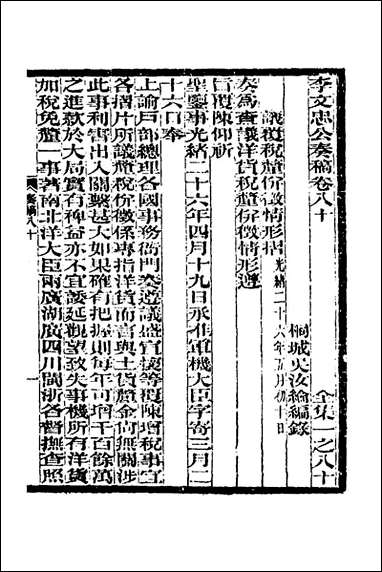 李文忠公奏稿卷八十
全集一之八十
桐城吳汝綸編錄
議覆稅釐俗徵情形摺光緒二十六年五月初十日
奏爲查議洋貨稅釐俗徵情形遵
旨覆陳仰祈
聖鑒事光緒二十六年四月十九日承准軍機大臣字寄三月二
十六日奉
上諭戶部總理各國事務衙門奏遵議盛宣懷等覆陳增稅事宜
各摺片所議釐稅倂徵係專指洋貨而言與土貨釐金尙無關涉
此事利害出入關繫甚大如果確有把握則每年可增千百餘萬
之進款於大局實有裨益亦不宜諉延觀望致失事機所有洋貨
加稅免釐一事著南北洋大臣兩廣湖廣四川閩浙各督撫查照
奏稿八十
一